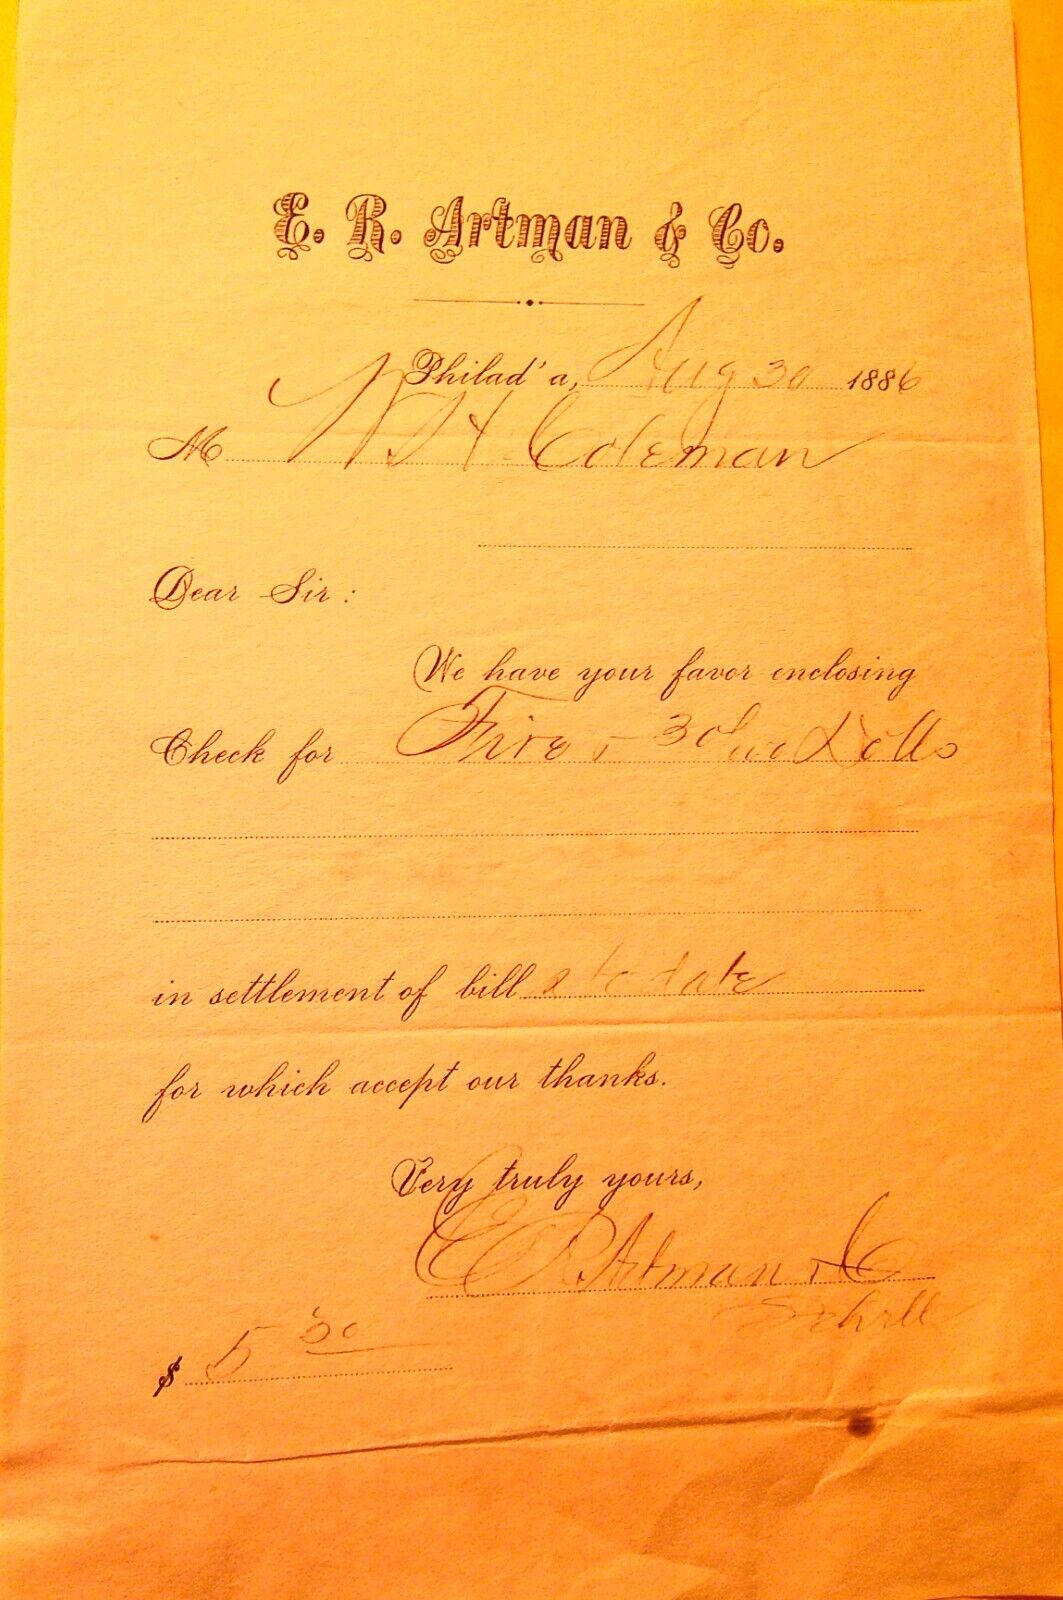 E. R. Artman & Co.
Philad'a, Aug 30 1886
M W H Coleman
Dear Sir:
We have your favor enclosing
Check for Five & 30/100 Dolls
in settlement of bill to date
for which accept our thanks.
Very truly yours,
E R. Artman & Co
$ 5 30